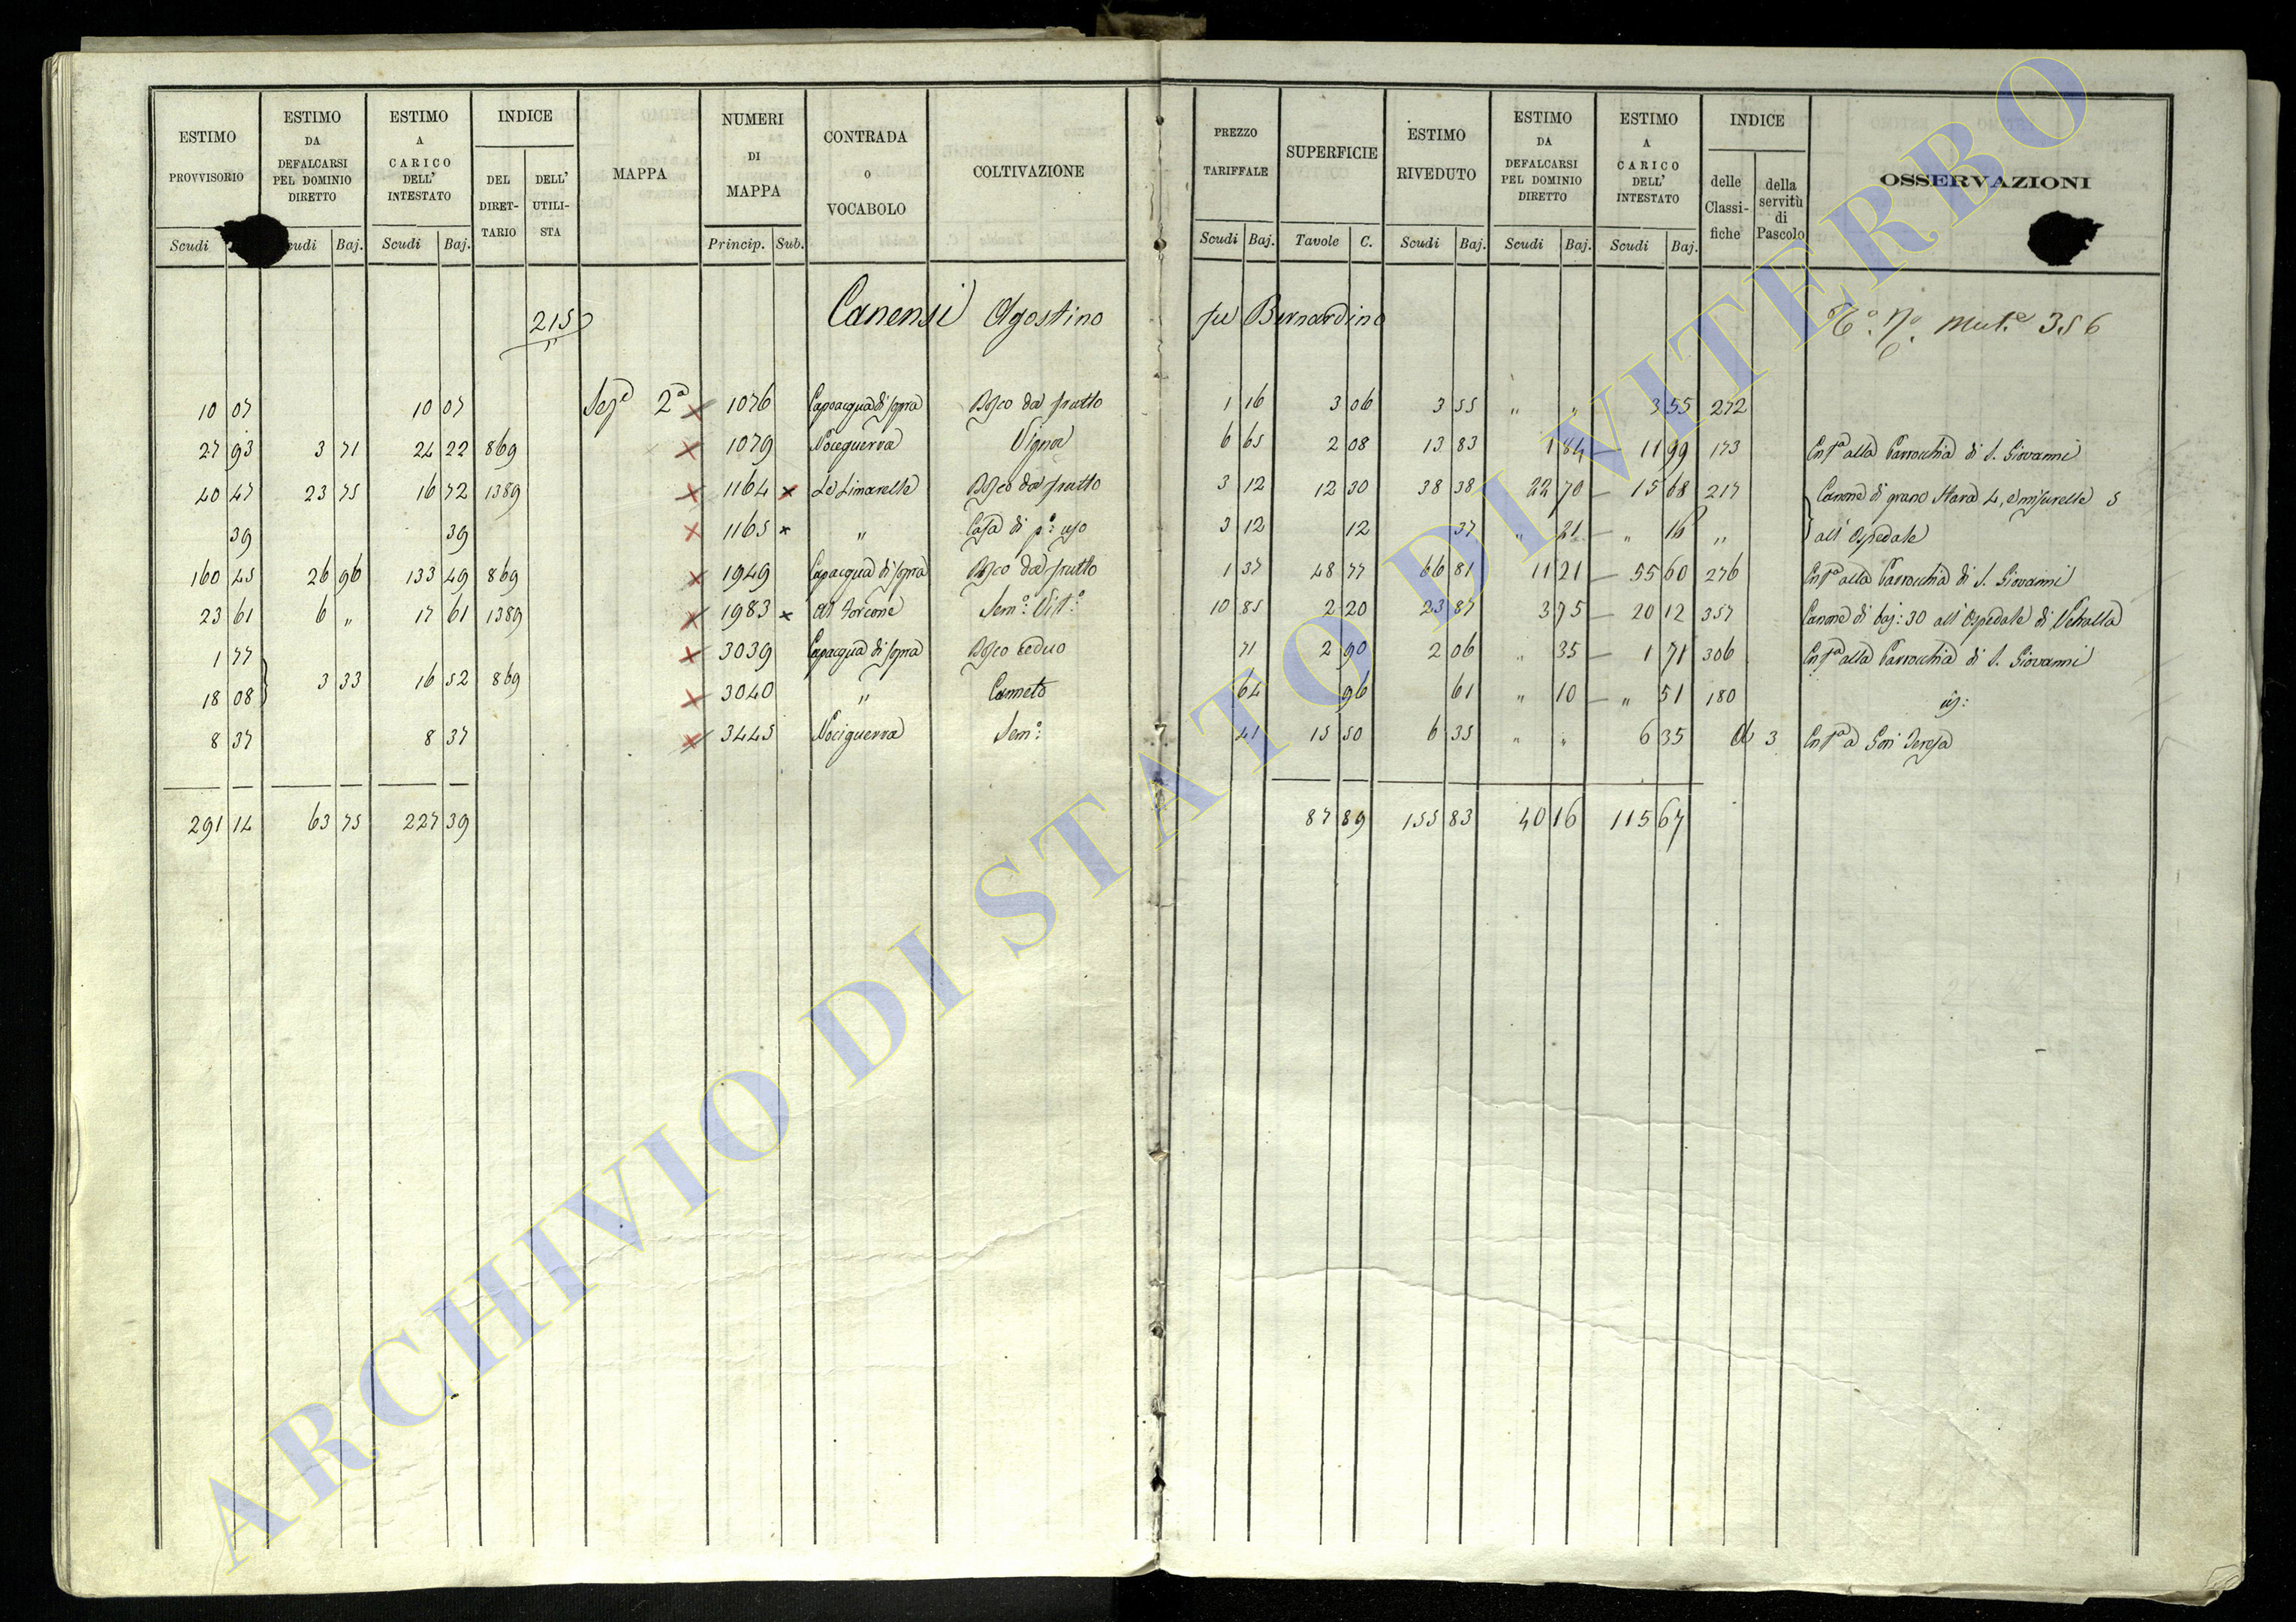 ESTIMO PROVVISORIO Scudi
ESTIMO DA DEFALCARSI PEL DOMINIO DIRETTO Scudi Baj.
ESTIMO A CARICO DELL' INTESTATO Scudi Baj.
INDICE DEL DIRET- TARIO DELL' UTILI- STA
MAPPA
NUMERI DI MAPPA Princip. Sub.
CONTRADA o VOCABOLO
COLTIVAZIONE
PREZZO TARIFFALE Scudi Baj.
SUPERFICIE Tavole C.
ESTIMO RIVEDUTO Scudi Baj.
ESTIMO DA DEFALCARSI PEL DOMINIO DIRETTO Scudi Baj.
ESTIMO A CARICO DELL' INTESTATO Scudi Baj.
INDICE delle Classi- fiche della servitù di Pascolo
OSSERVAZIONI
215 Canensi Agostino fu Bernardino Mut.e 356
10 07 10 07 Sez.a 2a 1076 Capoacqua di sopra Bosco da frutto 1 16 3 06 3 55 " " 3 55 272
27 93 3 71 24 22 869 1079 Noceguerra Vigna 6 65 2 08 13 83 1 84 11 99 173 Enf.a alla Parrocchia di S. Giovanni
40 47 23 75 16 72 1389 1164 x Le Limarelle Bosco da frutto 3 12 12 30 38 38 22 70 15 68 217 Canone di grano Stara 4, e misurelle 5
39 39 1165 x " Casa di p.o uso 3 12 12 37 " 21 " 16 " all' Ospedale
160 45 26 96 133 49 869 1949 Capacqua di sopra Bosco da frutto 1 37 48 77 66 81 11 21 55 60 276 Enf.a alla Parrocchia di S. Giovanni
23 61 6 " 17 61 1389 1983 x Al Forcone Sem.o Vit.o 10 85 2 20 23 87 3 75 20 12 357 Canone di baj: 30 all' Ospedale di Vetralla
1 77 3039 Capacqua di sopra Bosco ceduo 71 2 90 2 06 " 35 1 71 306 Enf.a alla Parrocchia di S. Giovanni
18 08 3 33 16 52 869 3040 " Canneto 64 96 61 " 10 " 51 180
8 37 8 37 3445 Nociguerra Sem.o 41 15 50 6 35 " " 6 35 3 Enf.a a Gori Teresa
291 14 63 75 227 39 87 89 155 83 40 16 115 67
ARCHIVIO DI STATO DI VITERBO